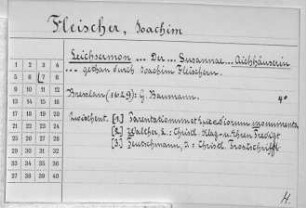 Fleischer, Joachim
Leichsermon ... Der ... Susannae ... Aichhäuserin
... gethan durch Joachim Fleischern.
Breslau (1629): G. Baumann. 4°
[1] Parentationum et Epicediorum monumenta
[2] Walther, : Christl. Klag- u. Ehren Predigt
[3] Teutschmann, J.: Christl. Trostschrifft
1 2 3 4
5 6 7 8
9 10 11 12
13 14 15 16
17 18 19 20
21 22 23 24
25 26 27 28
29 30 31 32
33 34 35 36
37 38 39 40
H.